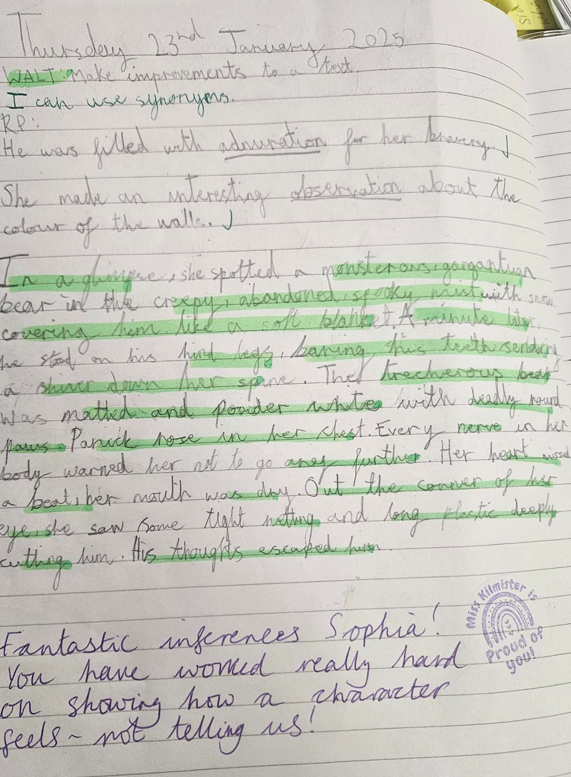 Thursday 23rd January 2025
WALT: Make improvements to a text.
I can use synonyms.
RP:
He was filled with admiration for her bravery.
She made an interesting observation about the
colour of the walls.
In a glimpse, she spotted a monsterous, gargantuan
bear in the creepy, abandoned, spooky mist with snow
covering him like a soft blanket. A minute later,
he stood on his hind legs, baring his teeth sending
a shiver down her spine. The trecherous bear
was matted and powder white with deadly round
paws. Panick rose in her chest. Every nerve in her
body warned her not to go any further. Her heart missed
a beat, her mouth was dry. Out the corner of her
eye, she saw some tight netting and long plastic deeply
cutting him. His thoughts escaped him.
Fantastic inferences Sophia!
You have worked really hard
on showing how a character
feels - not telling us!
Miss Kilmister is
Proud of
you!